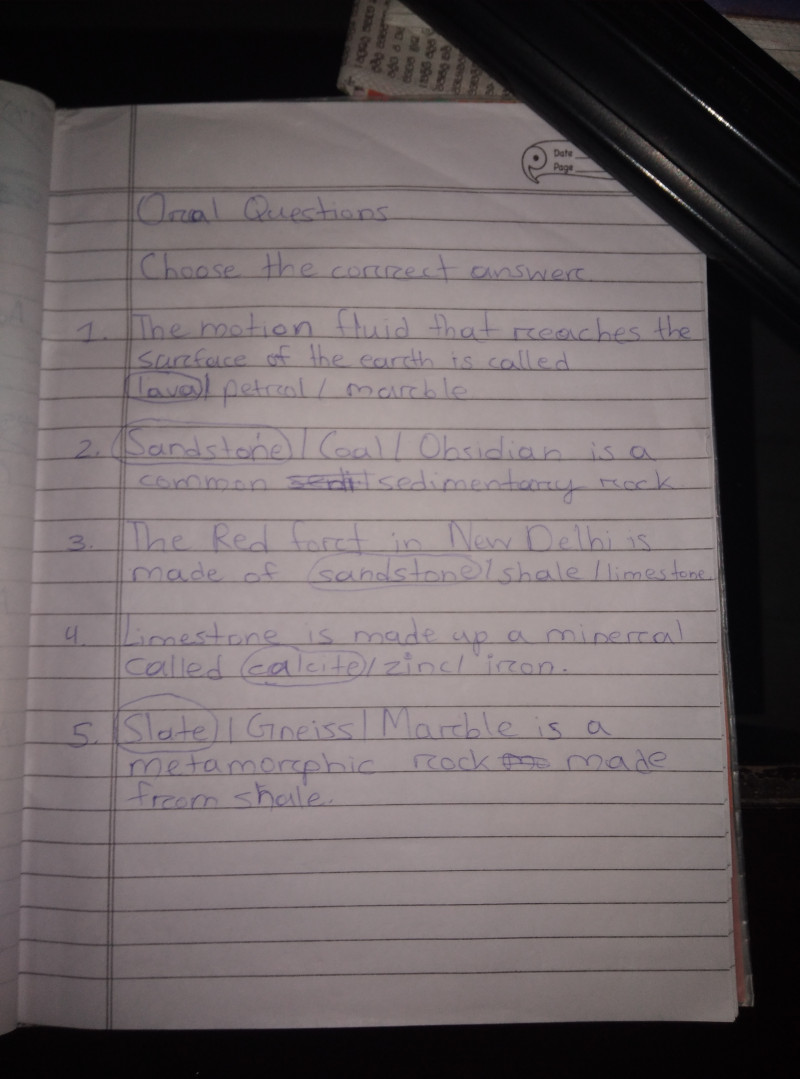 Date
Page
Oral Questions
Choose the correct answer
1. The motion fluid that reaches the
surface of the earth is called
lava/ petrol / marble
2. Sandstone / Coal / Obsidian is a
common sedimentary rock
3. The Red fort in New Delhi is
made of sandstone / shale / limestone
4. Limestone is made up a mineral
called calcite / zinc / iron.
5. Slate / Gneiss / Marble is a
metamorphic rock made
from shale.